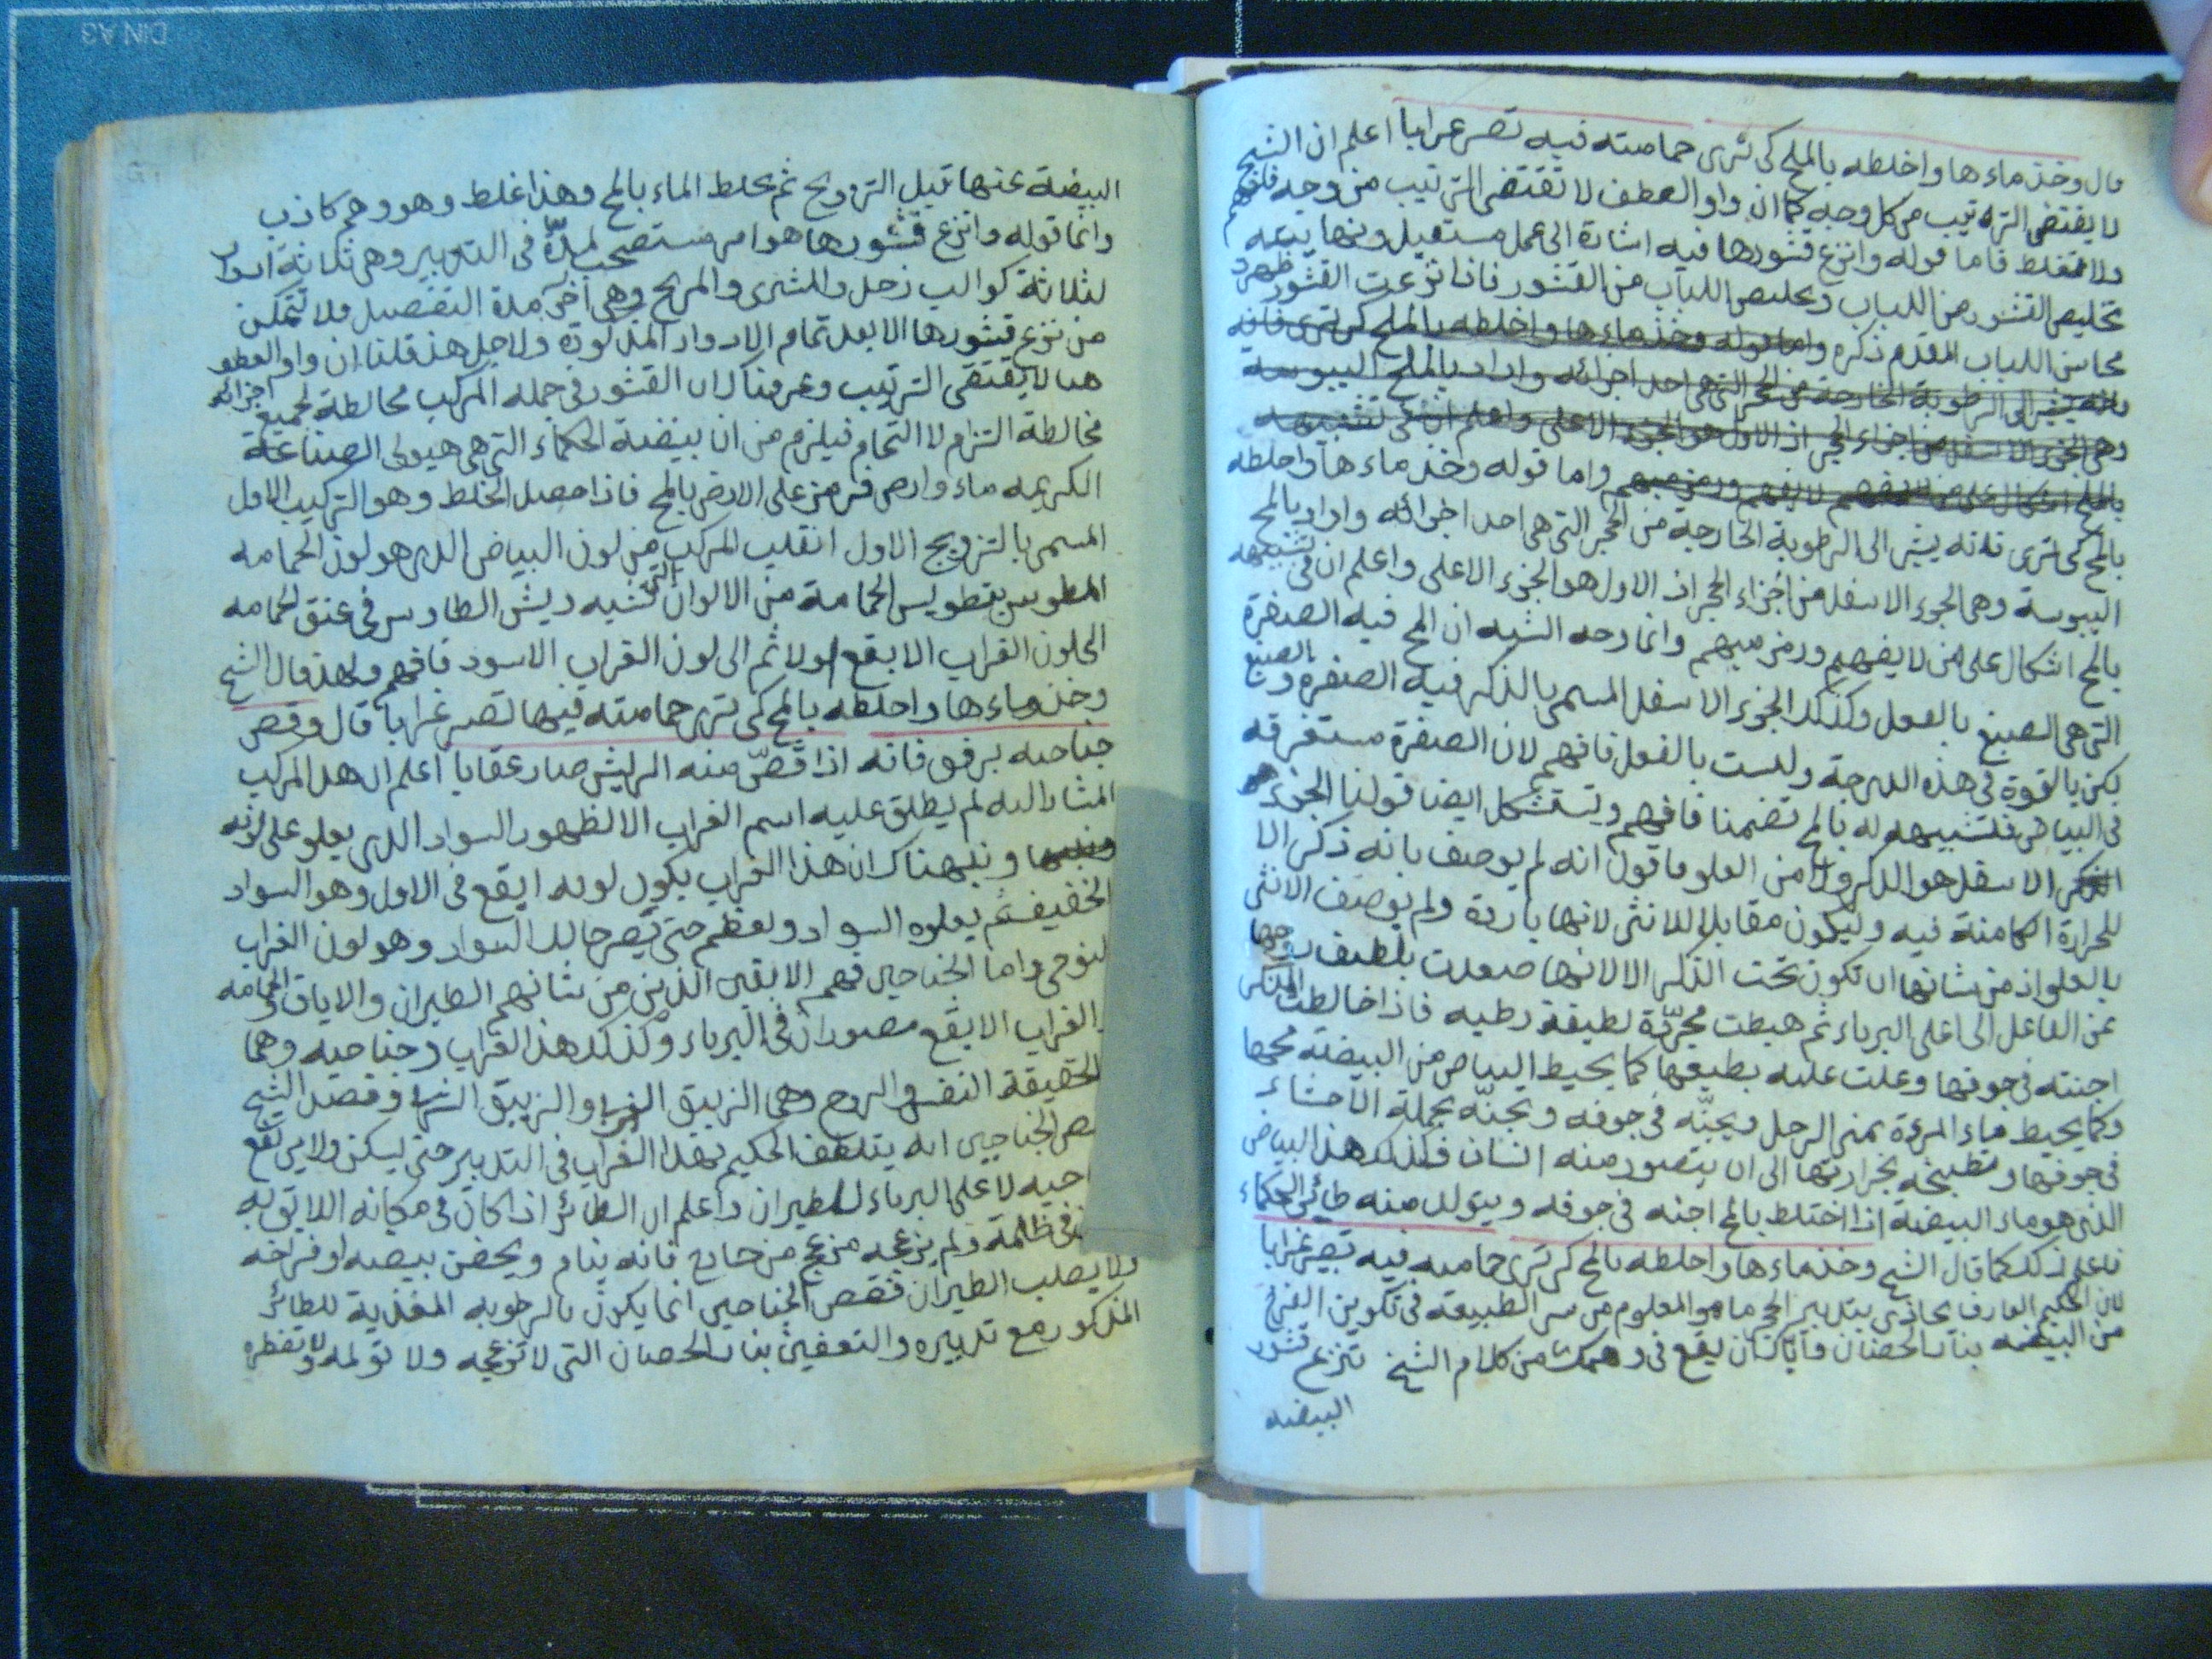 قال وخذ ماءها واخلطه بالملح كى ترى حمامته فيه تصير غرابا اعلم ان الشيخ
لا يقتضى الترتيب من كل وجه كما ان واو العطف لا تقتضى الترتيب من وجه فافهم
ولا تغلط فاما قوله وانزع قشورها فيه اشارة الى عمل مستقبل ونهايته
تخليص القشور من اللباب وتخليص اللباب من القشور فاذا نزعت القشور ظهرت
محاسن اللباب المقدم ذكره واما قوله وخذ ماءها واخلطه بالملح كى ترى فانه
يشير الى الرطوبة الخارجة من الحجر التى هى احد اجزائه واراد بالملح اليبوسة
وهى الجزء الاسفل من اجزاء الحجر اذ الاول هو الجزء الاعلى واعلم ان فى تشبيهه
بالملح اشكال على من لا يفهم ورمز مبهم واما قوله وخذ ماءها واخلطه
بالمح كى ترى فانه يشير الى الرطوبة الخارجة من الحجر التى هى احد اجزائه واراد بالمح
اليبوسة وهى الجزء الاسفل من اجزاء الحجر اذ الاول هو الجزء الاعلى واعلم ان فى تشبيهه
بالمح اشكال على من لا يفهم ورمز مبهم وانما وجه الشبه ان المح فيه الصفرة
التى هى الصبغ بالفعل وكذلك الجزء الاسفل المسمى بالذكر فيه الصفرة والصبغ
لكن بالقوة فى هذه الدرجة وليست بالفعل فافهم لان الصفرة مستغرقه
فى البياض فتشبيهه له بالمح تضمنا فافهم ويستشكل ايضا قولنا الجزء
الاسفل هو الذكر ولا من العلو فاقول انه لم يوصف بانه ذكر الا
للحرارة الكامنة فيه وليكون مقابلا للانثى لانها باردة ولم يوصف الانثى
بالعلو اذ من شانها ان تكون تحت الذكر الا لانها صعدت بلطيف روحها
عن الفاعل الى اعلى البرباء ثم هبطت محررة لطيفة رطبه فاذا خالطت الذكر
اجنته فى جوفها وعلت عليه بطبعها كما يحيط البياض من البيضة بمحها
وكما يحيط ماء المرءة بمنى الرجل ويجنّه فى جوفه ويجنّه بجملة الاحشاء
فى جوفها وتطبخه بحرارتها الى ان يتصور منه انسان فكذلك هذا البياض
الذى هو ماء البيضة اذا اختلط بالمح اجنه فى جوفه ويتولد منه طائر الحكماء
فاعلم ذلك كما قال الشيخ وخذ ماءها واخلطه بالمح كى ترى حمامته فيه تصير غرابا
لان الحكيم العارف يحاذى بتدبير الحجر ما هو المعلوم من سر الطبيعة فى تكوين الفرخ
من البيضه بنار الحضان فاياك ان يقع فى وهمك من كلام الشيخ تنزع قشور
البيضه
البيضة عنها قبل التزويج ثم يخلط الماء بالمح وهذا غلط وهو وهم كاذب
وانما قوله وانزع قشورها هو امر مستصحب لمدة فى التدبير وهى ثلاثة ادوار
لثلاثة كواكب زحل والمشترى والمريخ وهى آخر مدة التفصيل ولا تتمكن
من نزع قشورها الا بعد تمام الادوار المذكورة ولاجل هذا قلنا ان واو العطف
هنا لا يقتضى الترتيب وعرفناك ان القشور فى جمله المركب مخالطة لجميع اجزائه
مخالطة التزام لا التحام فيلزم من ان بيضة الحكماء التى هى هيولى الصناعة
الكريمه ماء وارض فرمز على الارض بالمح فاذا حصل الخلط وهو التركيب الاول
المسمى بالتزويج الاول انقلب المركب من لون البياض الذى هو لون الحمامه
المطوس بتطويس الحمامة من الالوان التى تشبه ريش الطاوس فى عنق الحمامه
الى لون الغراب الابقع اولا ثم الى لون الغراب الاسود فافهم ولهذا قال الشيخ
وخذ ماءها واخلطه بالمح كى ترى حمامته فيها تصير غرابا قال وقص
جناحيه برفق فانه اذا قصّ منه الريش صار عقابا اعلم ان هذا المركب
المشار اليه لم يطلق عليه اسم الغراب الا لظهور السواد الذى يعلو على لونه
ونبهناك ان هذا الغراب يكون لونه ابقع فى الاول وهو السواد
الخفيف ثم يعلوه السواد ويعظم حتى يصير حالك السواد وهو لون الغراب
النوحى واما الجناحين فهم الابقين الذين من شانهم الطيران والاباق والحمامه
والغراب الابقع مصوران فى البرباء وكذلك هذا الغراب وجناحيه وهما
الحقيقة النفس والروح وهما الزيبق الغربى والزيبق الشرقى وقصد الشيخ
بقص الجناحين انه يتلطف الحكيم بهذا الغراب فى التدبير حتى يسكن ولا يرتفع
جناحيه لاعلى البرباء للطيران واعلم ان الطائر اذا كان فى مكانه اللايق به
فى ظلمة ولم يزعجه مزعج من خارج فانه ينام ويحضن بيضه او فراخه
ولا يطلب الطيران فقص الجناحين انما يكون بالرطوبه المغذية للطائر
المذكور مع تدبيره والتعفين بنار الحضان التى لا تزعجه ولا تولمه ولا تفطره